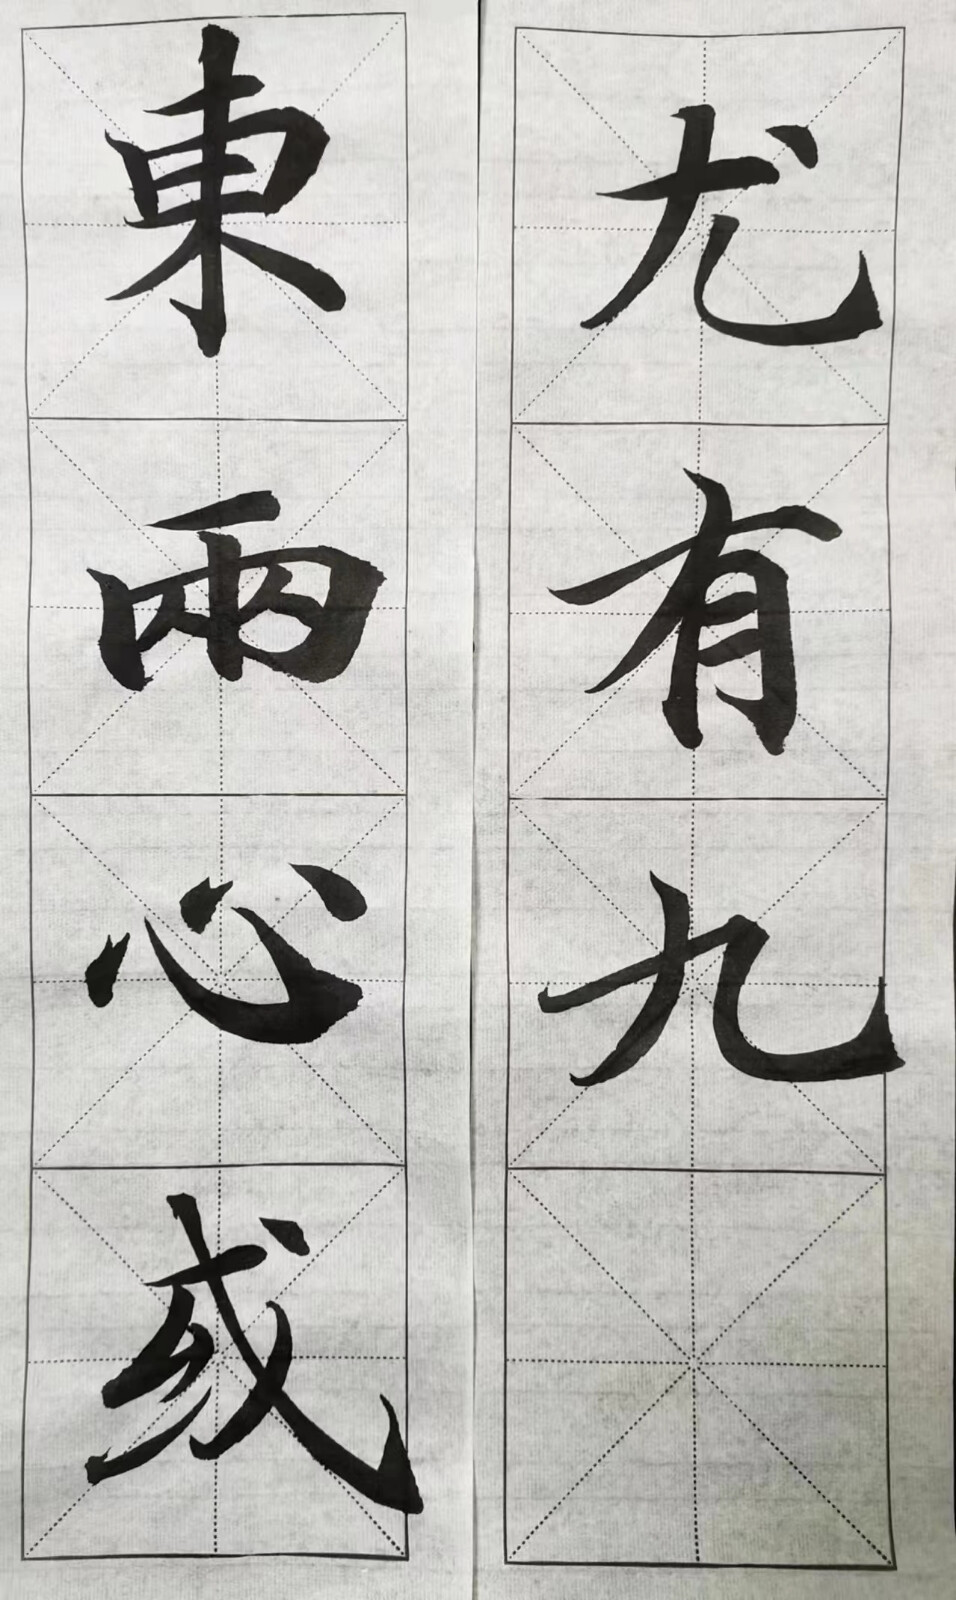 東兩心或
尤有九